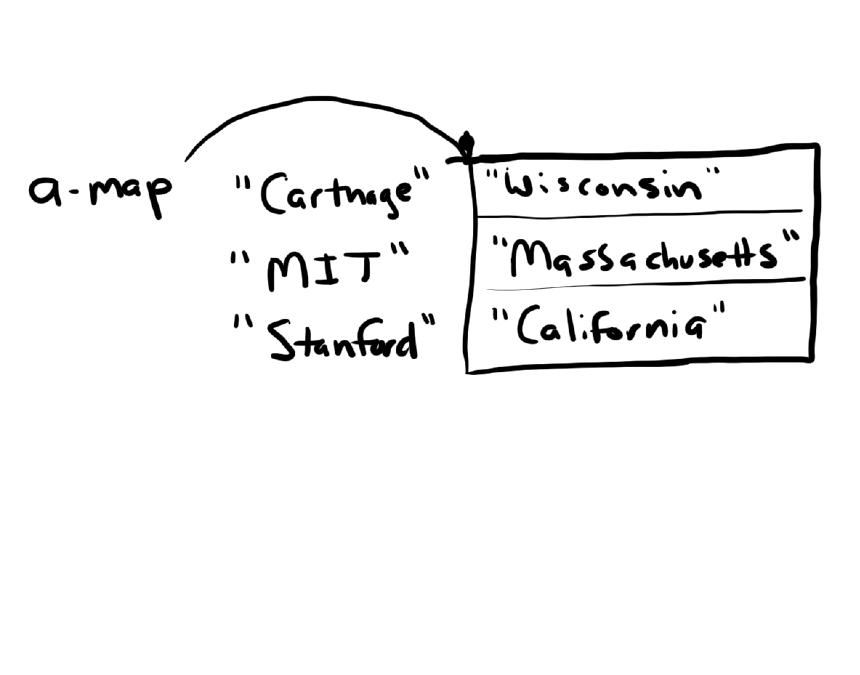 a-map "Carthage" "Wisconsin"
"MIT" "Massachusetts"
"Stanford" "California"